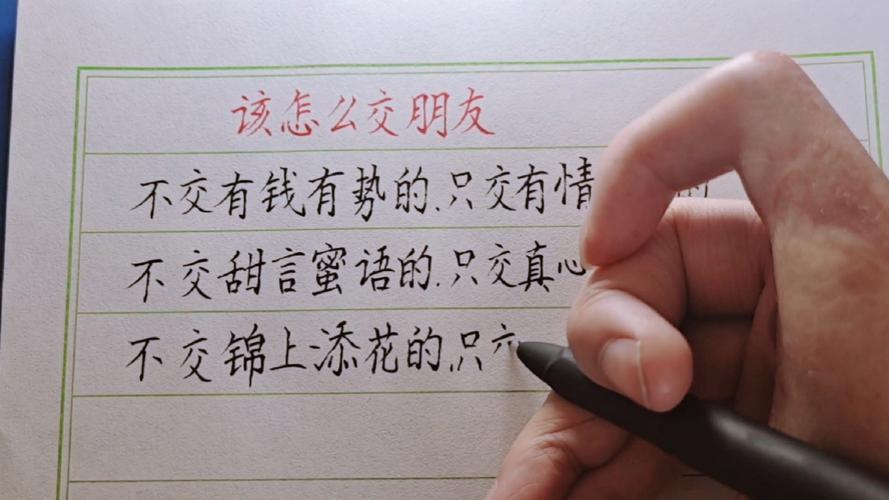 该怎么交朋友
不交有钱有势的.只交有情
不交甜言蜜语的.只交真心
不交锦上添花的.只